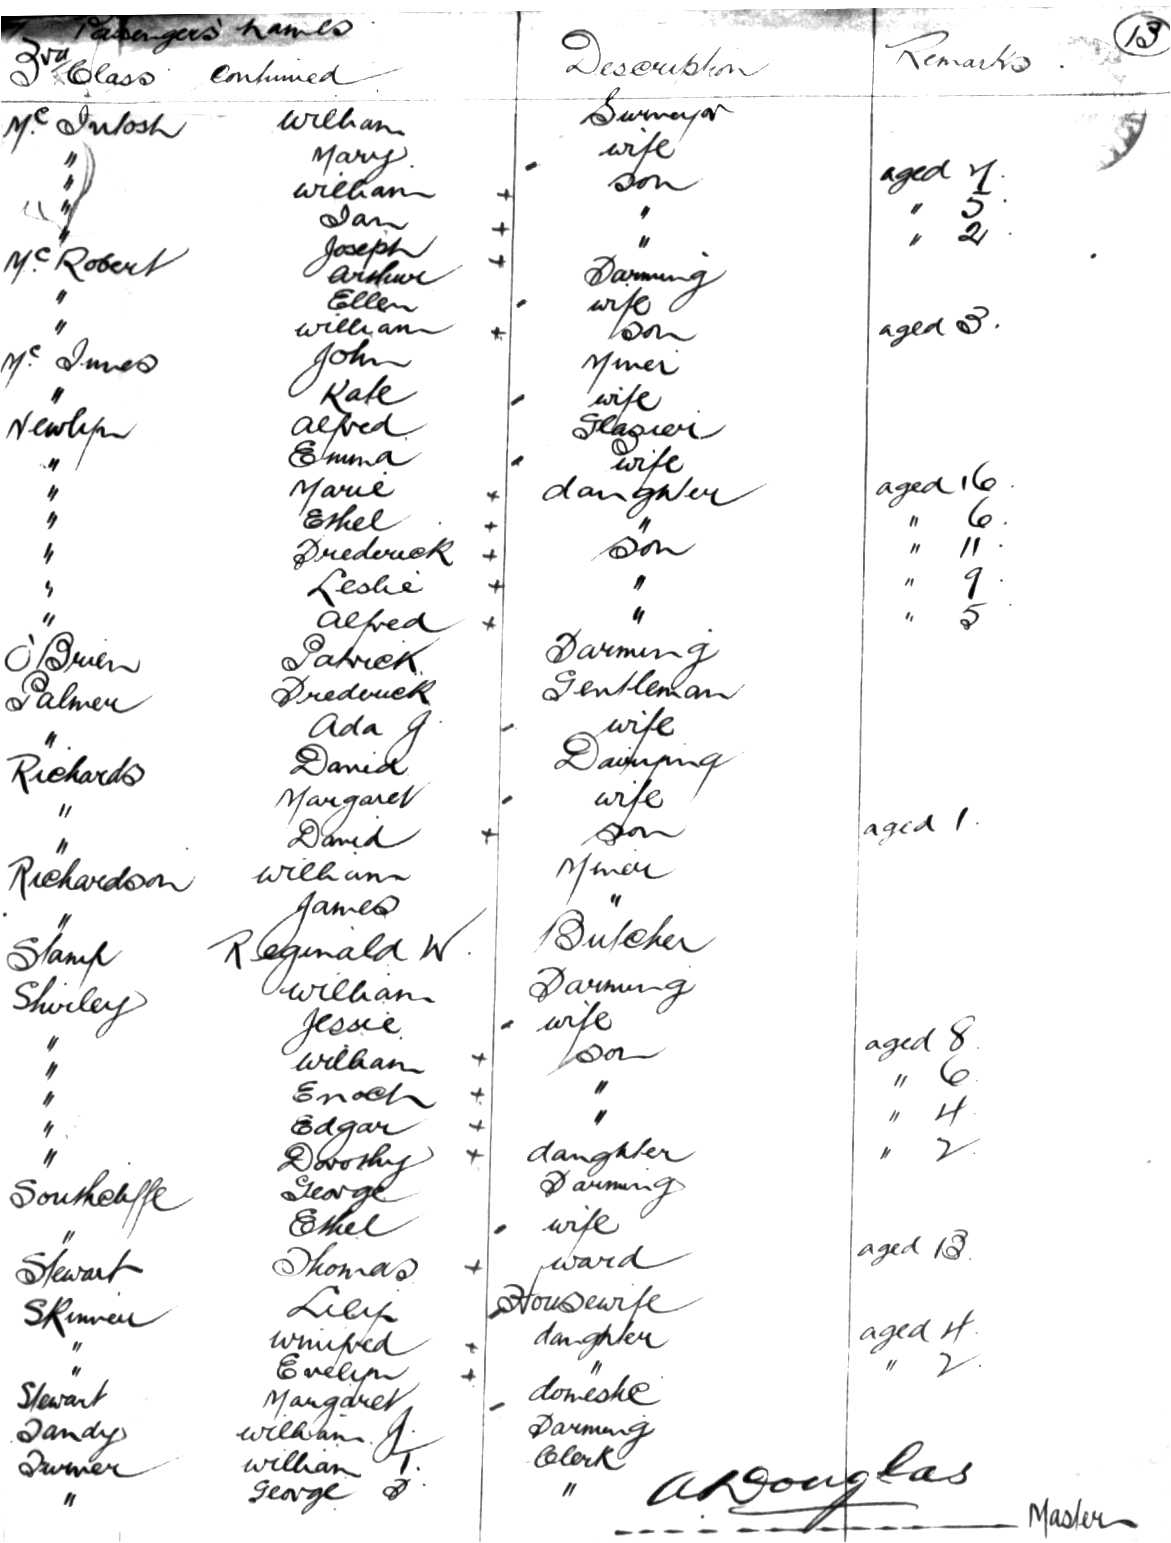 Passengers' names
3rd Class continued Description Remarks. 13
Mc Intosh William Surveyor
" Mary wife
" William + son aged 7.
" Ian + " " 5.
" Joseph + " " 2.
Mc Robert Arthur Farming
" Ellen wife
" William + son aged 3.
Mc Innes John Miner
" Kate wife
Newlyn Alfred Glazier
" Emma wife
" Marie + daughter aged 16.
" Ethel + " " 6.
" Frederick + son " 11.
" Leslie + " " 9.
" Alfred + " " 5
O'Brien Patrick Farming
Palmer Frederick Gentleman
" Ada J. wife
Richards David
" Margaret wife
" David + son aged 1.
Richardson William Miner
" James "
Stamp Reginald W. Butcher
Shirley William Farming
" Jessie wife
" William + son aged 8.
" Enoch + " " 6.
" Edgar + " " 4.
" Dorothy + daughter " 2.
Southcliffe George Farming
" Ethel wife
Stewart Thomas + ward aged 13.
Skinner Lily Housewife
" Winifred + daughter aged 4.
" Evelyn + " " 2.
Stewart Margaret domestic
Tandy William J. Farming
Turner William T. Clerk
" George F. "
A.R Douglas
Master